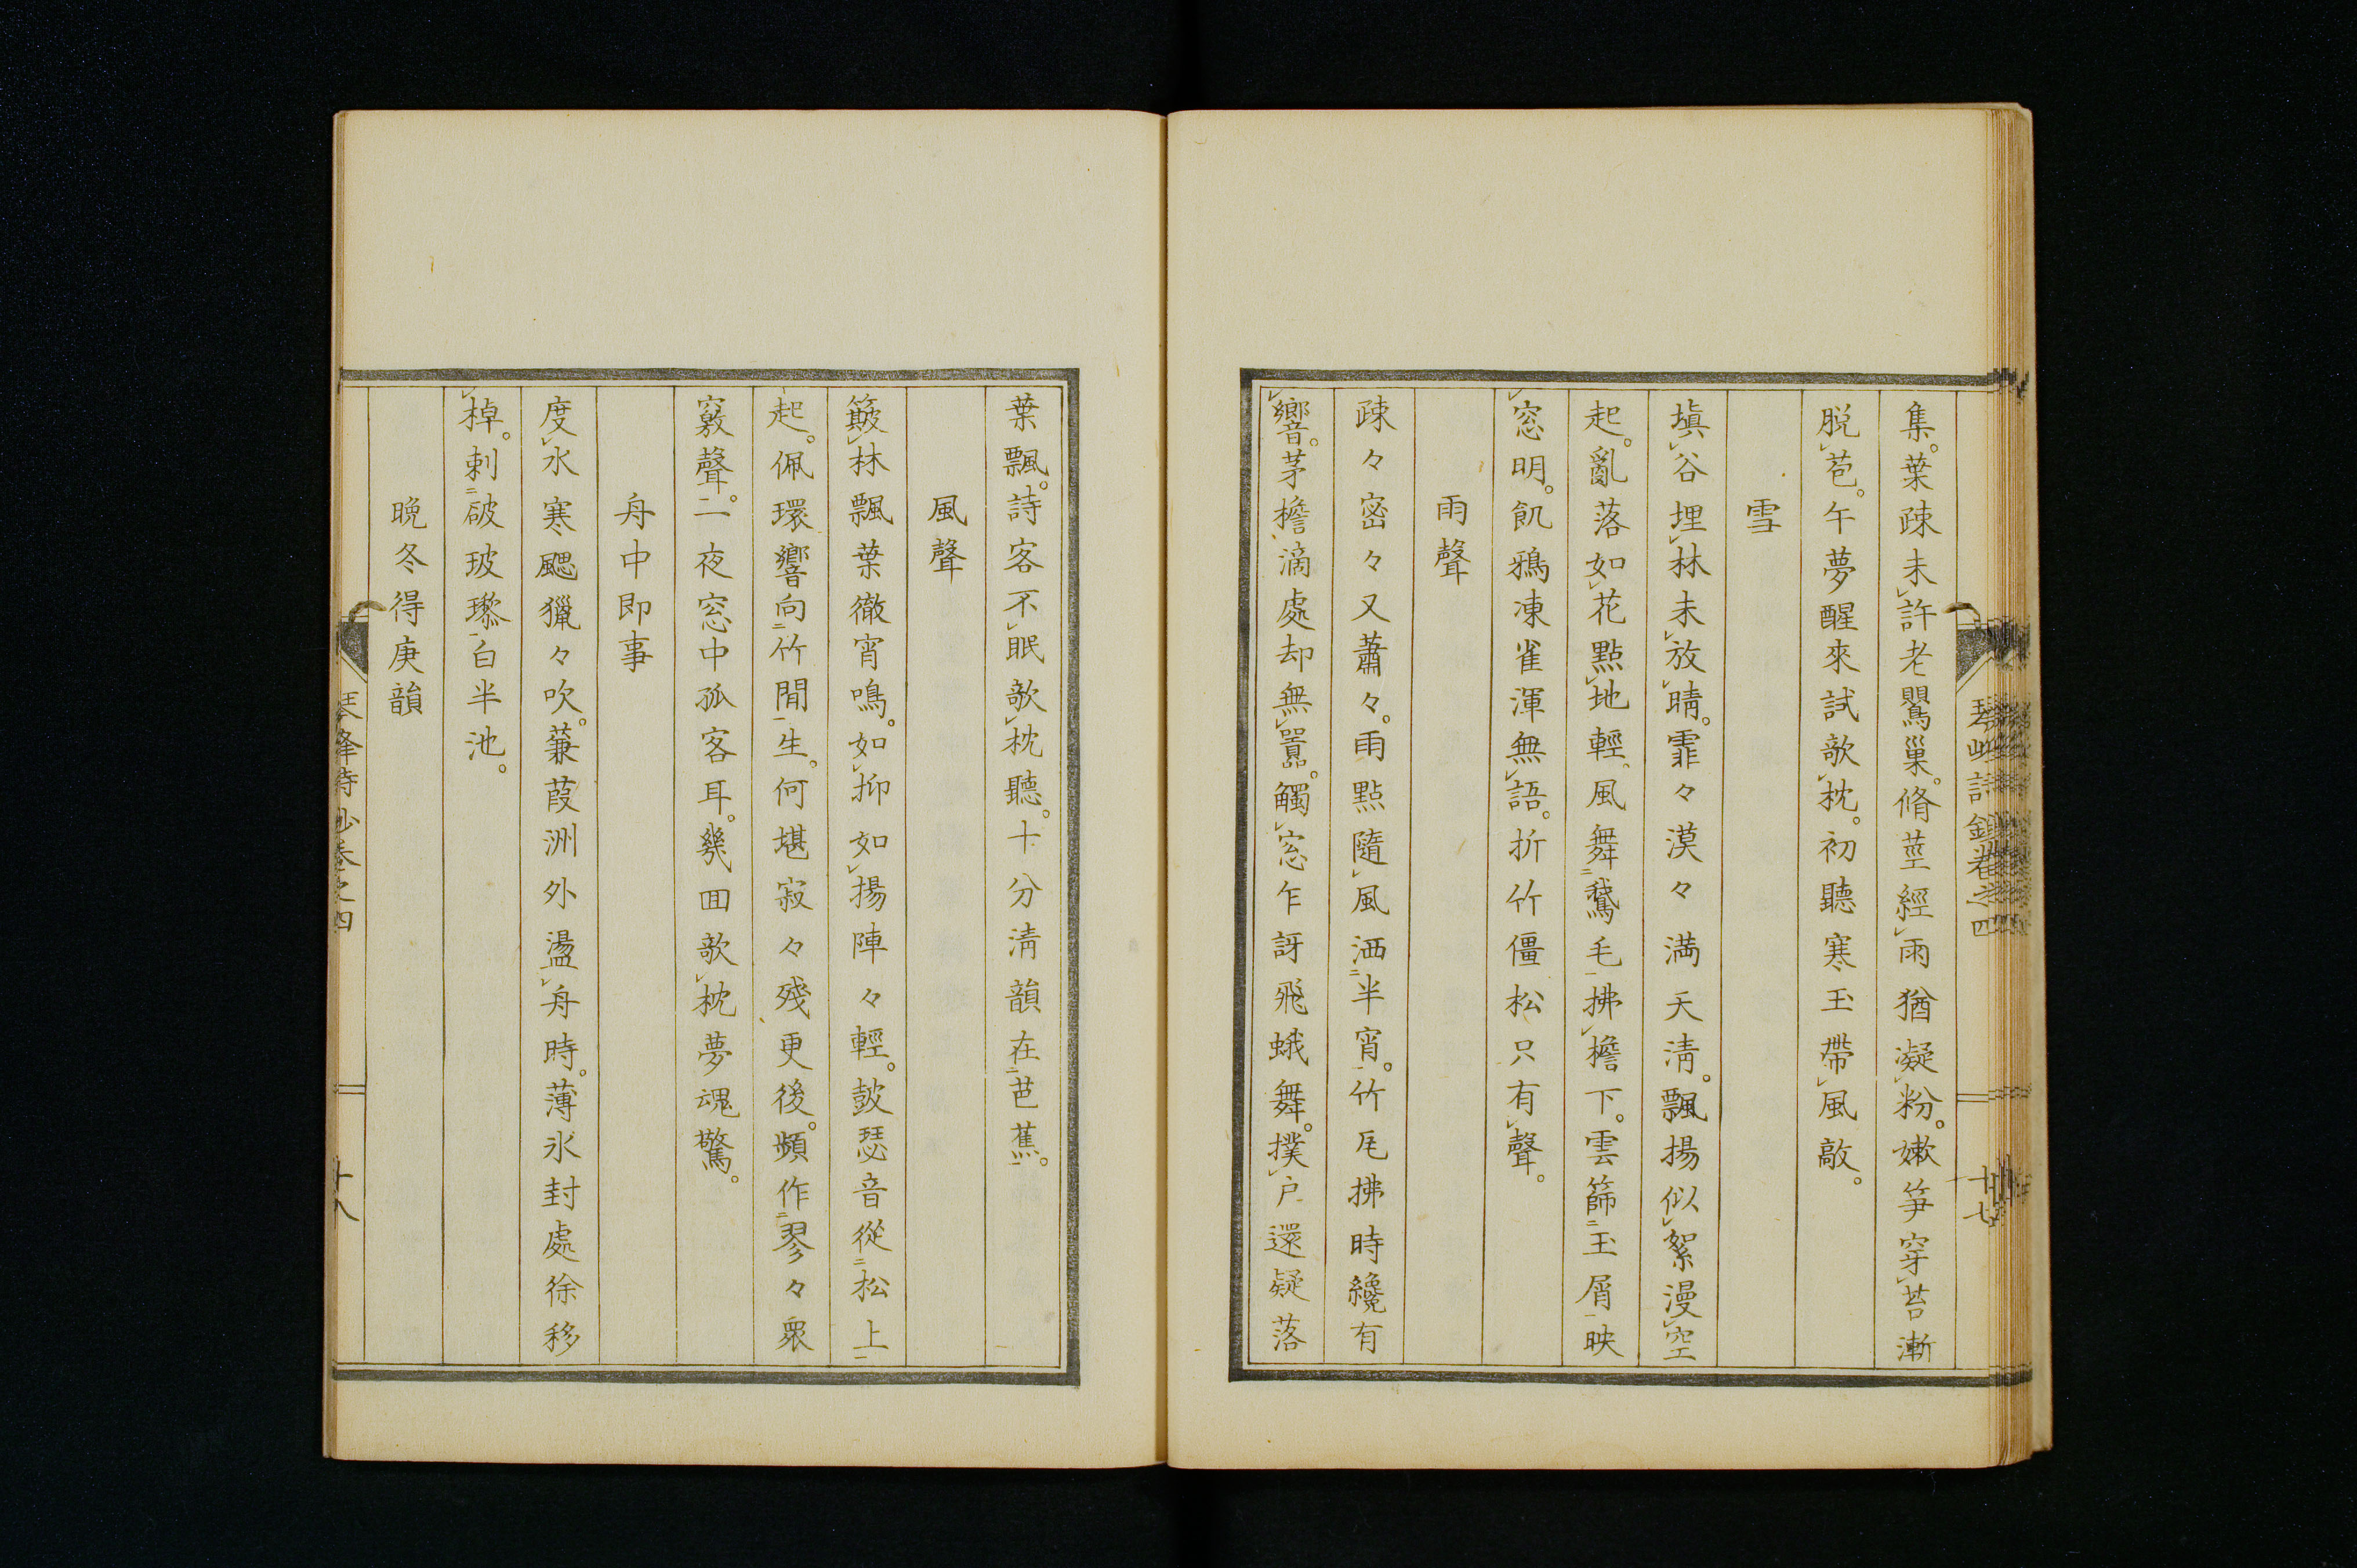 集。葉疎未許老鸎巢。脩莖經雨猶凝粉。嫩笋穿苔漸
脱苞。午夢醒來試欹枕。初聽寒玉帶風敲。
雪
塡谷埋林未放晴。霏々漠々満天淸。飄揚似絮漫空
起。亂落如花點地輕。風舞鵞毛拂檐下。雲篩玉屑映
窓明。飢鴉凍雀渾無語。折竹僵松只有聲。
雨聲
疎々密々又蕭々。雨點隨風洒半宵。竹尾拂時纔有
響。茅檐滴處却無囂。觸窓乍訝飛蛾舞。撲戸還疑落
十七
葉飄。詩客不眠欹枕聽。十分淸韻在芭蕉。
風聲
簸林飄葉徹宵鳴。如抑如揚陣々輕。鼓瑟音從松上
起。佩環響向竹間生。何堪寂々殘更後。頻作翏々衆
竅聲。一夜窓中孤客耳。幾囬欹枕夢魂驚。
舟中即事
度水寒颸獵々吹。蒹葭洲外盪舟時。薄氷封處徐移
棹。刺破玻瓈白半池。
晩冬得庚韻
琴峰詩鈔卷之四
十八